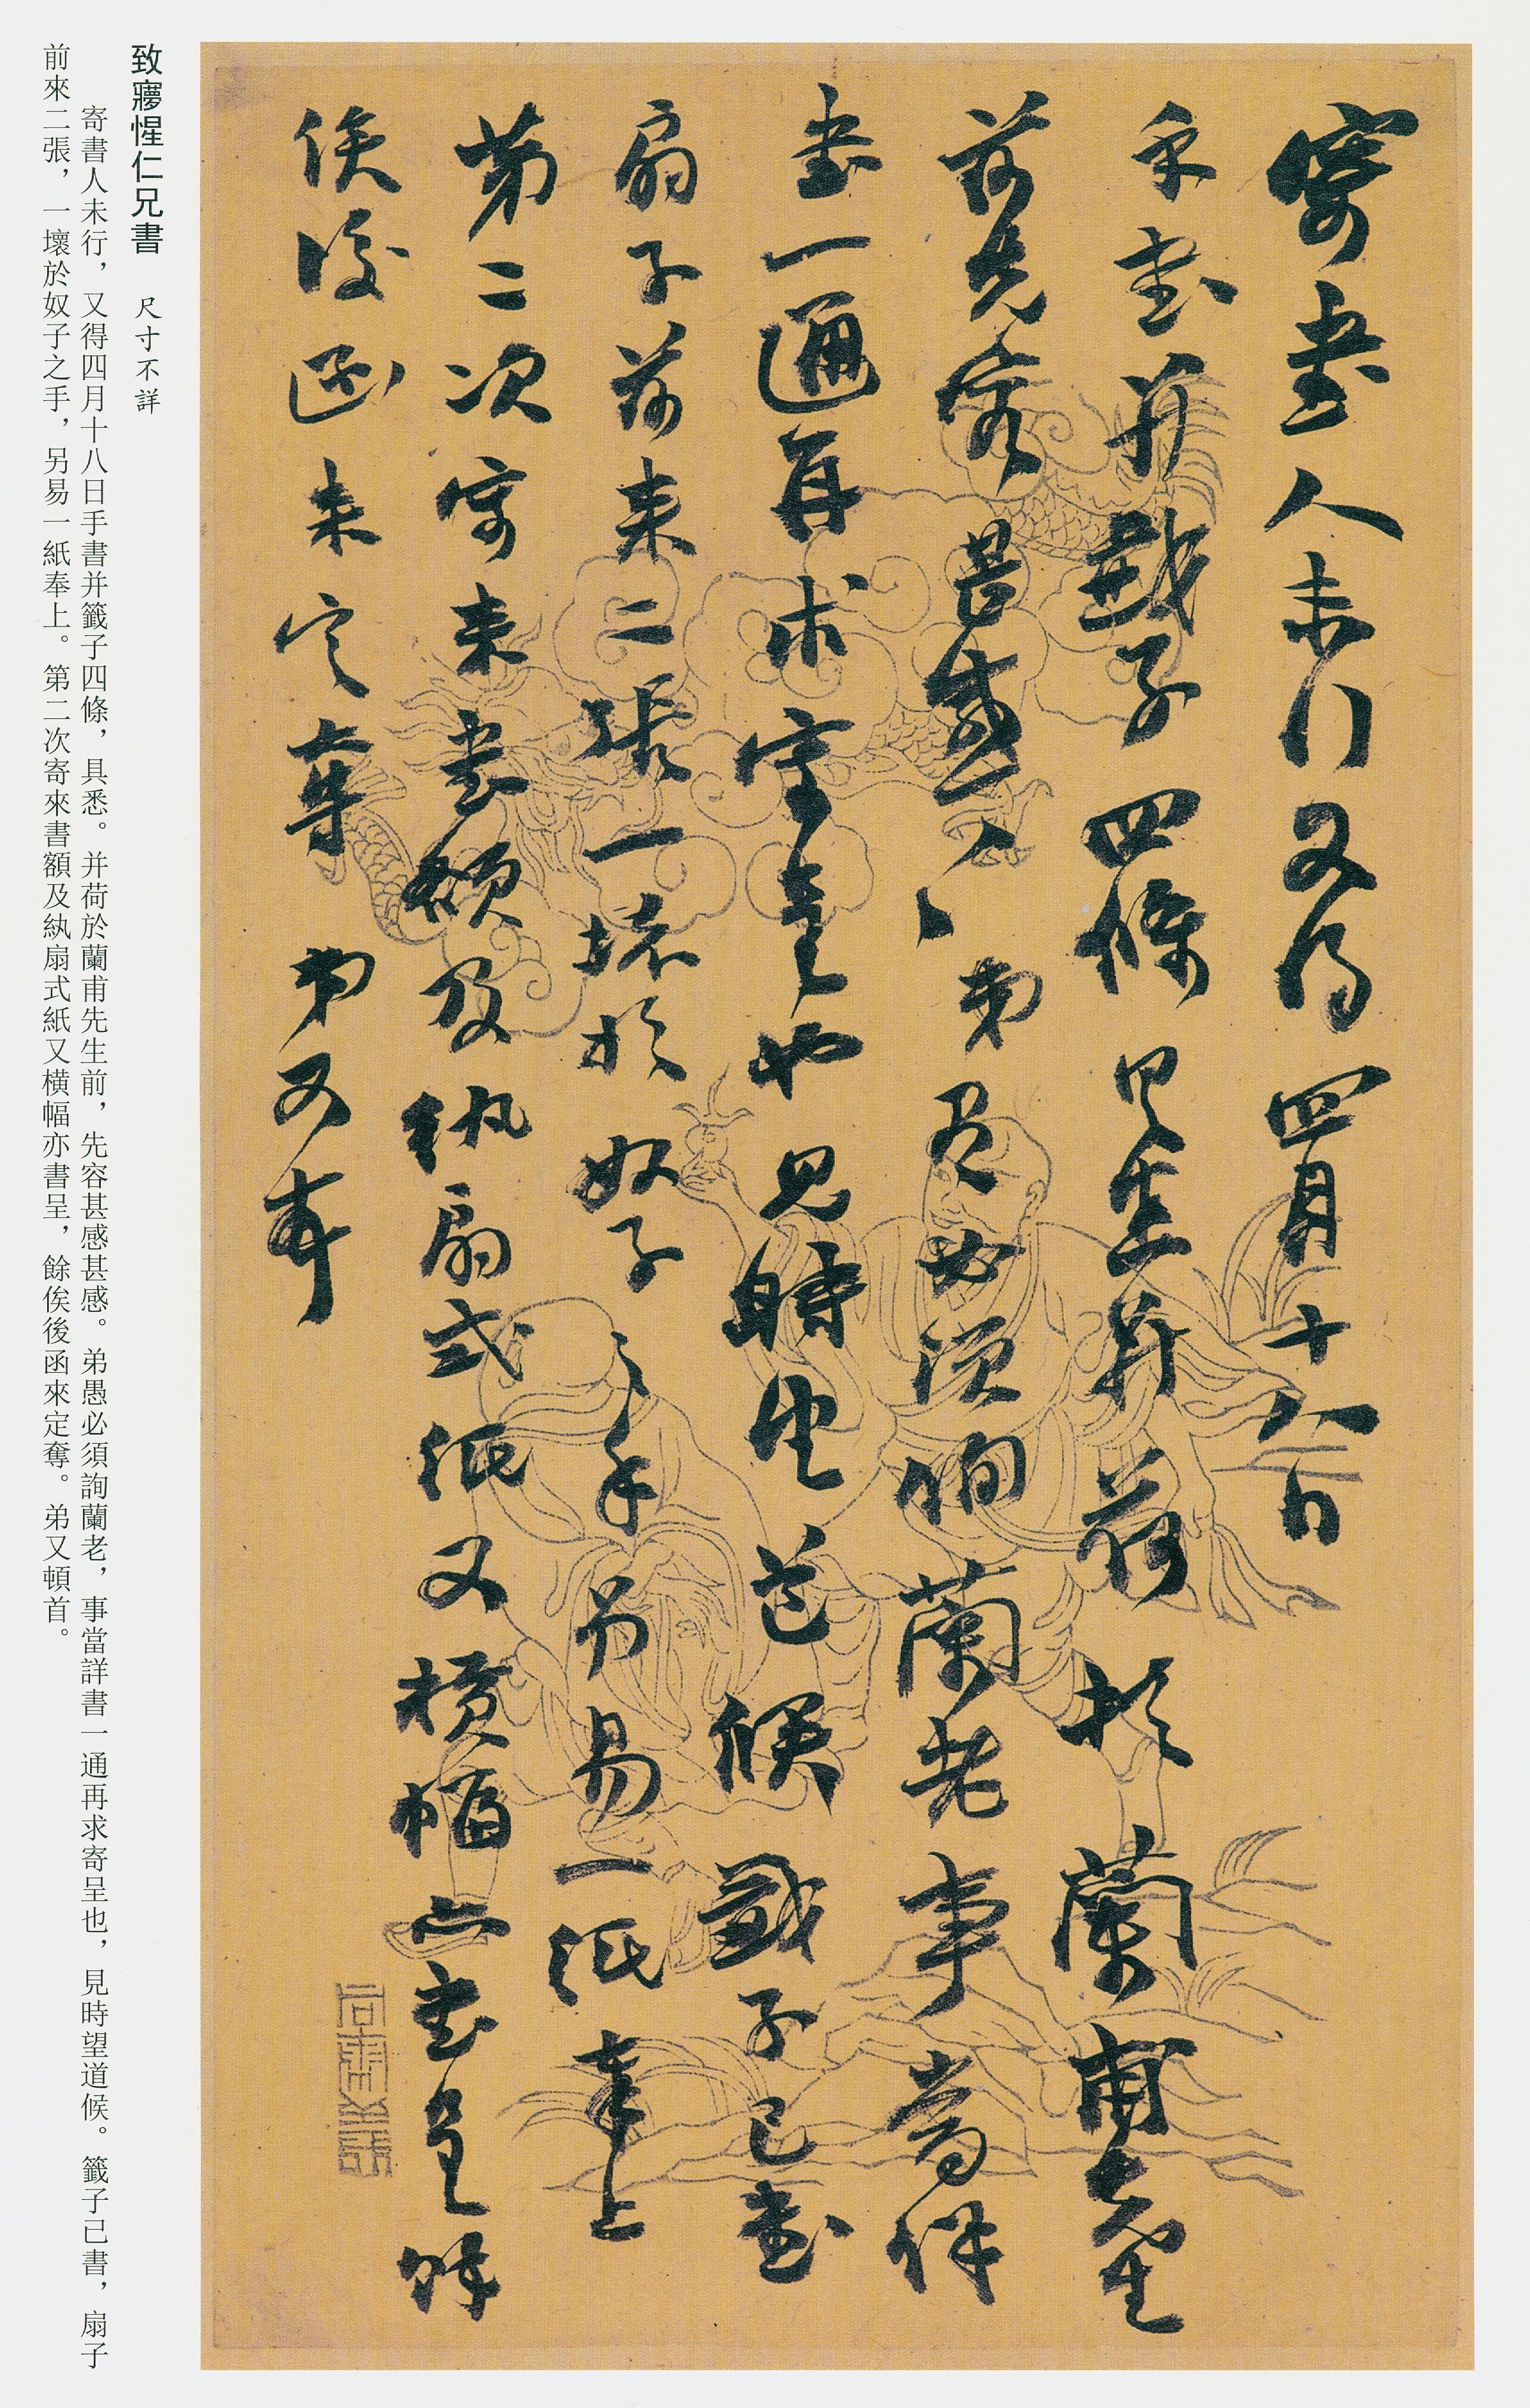 寄書人未行又得四月十八日
手書并籤子四條具悉并荷於蘭甫先生
前先容甚感〻〻弟愚必須詢蘭老事當詳
書一通再求寄呈也見時望道候籤子已書
扇子前来二張一壞於奴子之手另易一紙奉上
第二次寄来書額及紈扇式紙又橫幅亦書呈餘
俟後函来定奪弟又頓首
致㝱惺仁兄書 尺寸不詳
寄書人未行，又得四月十八日手書并籤子四條，具悉。并荷於蘭甫先生前，先容甚感甚感。弟愚必須詢蘭老，事當詳書一通再求寄呈也，見時望道候。籤子已書，扇子
前來二張，一壞於奴子之手，另易一紙奉上。第二次寄來書額及紈扇式紙又橫幅亦書呈，餘俟後函來定奪。弟又頓首。